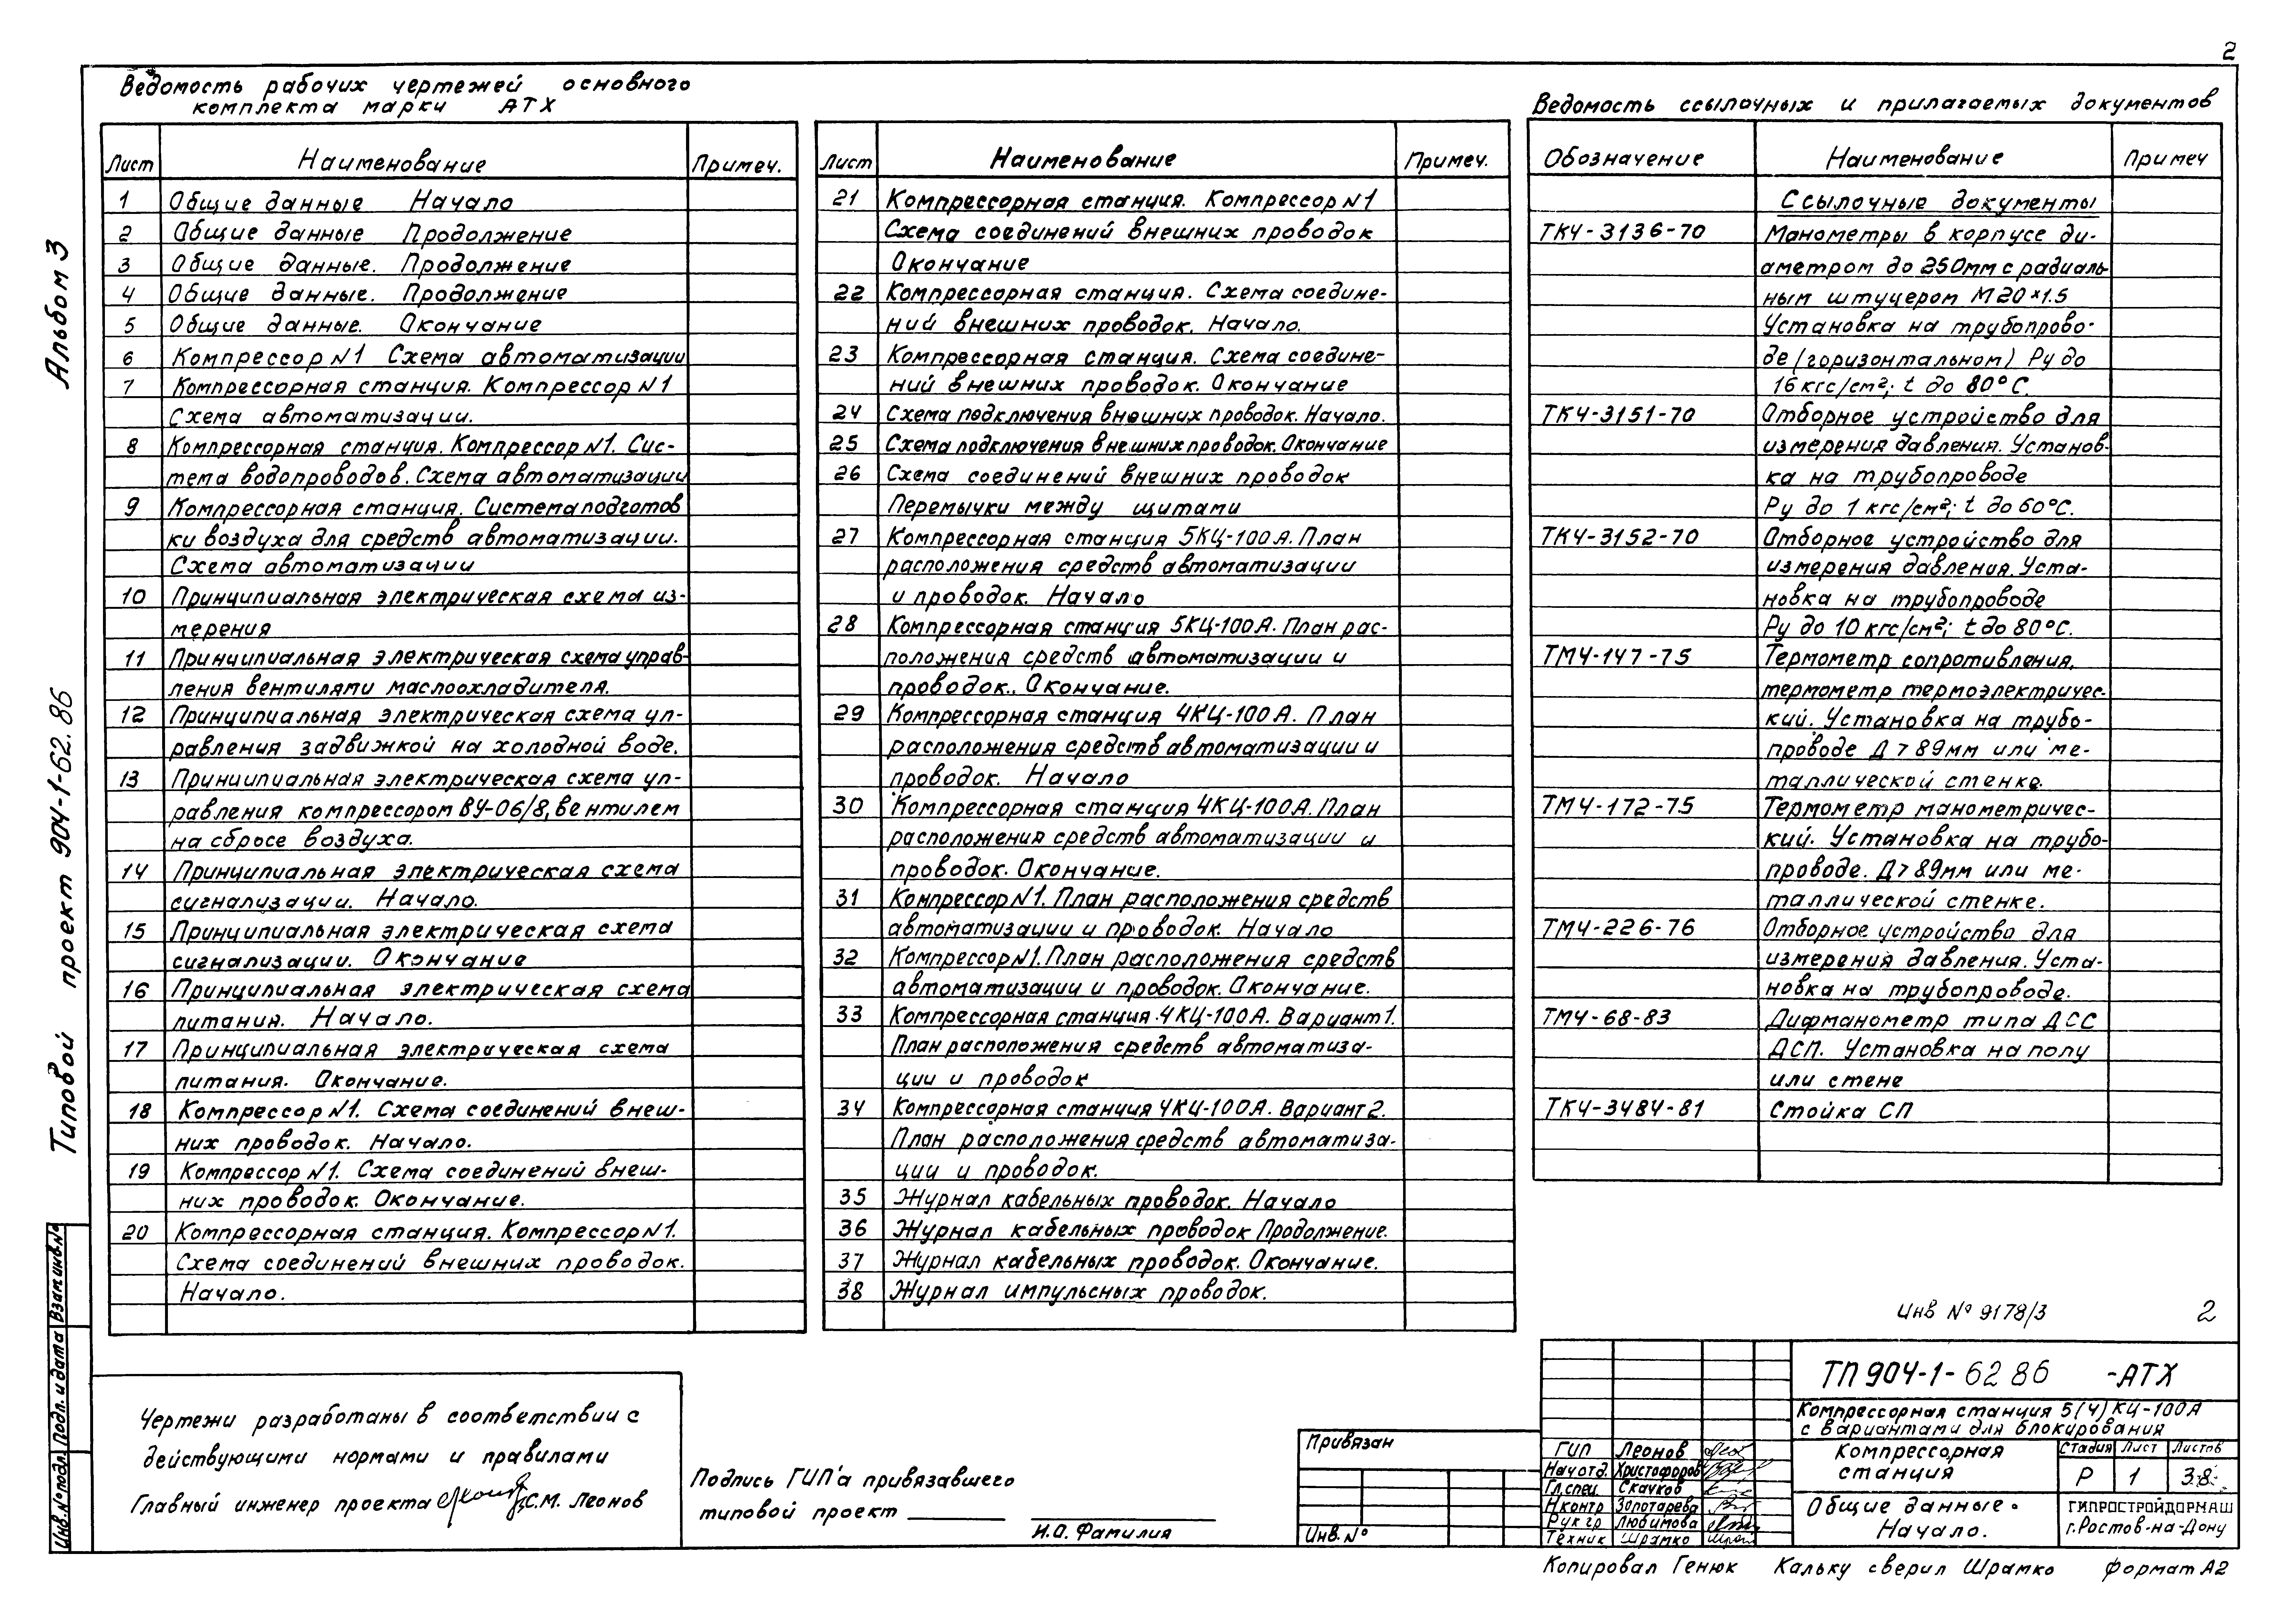 2
Ведомость рабочих чертежей основного
комплекта марки АТХ
Лист Наименование Примеч.
1 Общие данные Начало
2 Общие данные Продолжение
3 Общие данные. Продолжение
4 Общие данные. Продолжение
5 Общие данные. Окончание
6 Компрессор N1 Схема автоматизации
7 Компрессорная станция. Компрессор N1
Схема автоматизации.
8 Компрессорная станция. Компрессор N1. Сис-
тема водопроводов. Схема автоматизации
9 Компрессорная станция. Система подготов
ки воздуха для средств автоматизации.
Схема автоматизации
10 Принципиальная электрическая схема из-
мерения
11 Принципиальная электрическая схема управ-
ления вентилями маслоохладителя.
12 Принципиальная электрическая схема уп-
равления задвижкой на холодной воде.
13 Принципиальная электрическая схема уп-
равления компрессором ВУ-06/8, вентилем
на сбросе воздуха.
14 Принципиальная электрическая схема
сигнализации. Начало.
15 Принципиальная электрическая схема
сигнализации. Окончание
16 Принципиальная электрическая схема
питания. Начало.
17 Принципиальная электрическая схема
питания. Окончание.
18 Компрессор N1. Схема соединений внеш-
них проводок. Начало.
19 Компрессор N1. Схема соединений внеш-
них проводок. Окончание.
20 Компрессорная станция. Компрессор N1.
Схема соединений внешних проводок.
Начало.
Лист Наименование Примеч.
21 Компрессорная станция. Компрессор N1
Схема соединений внешних проводок
Окончание
22 Компрессорная станция. Схема соедине-
ний внешних проводок. Начало.
23 Компрессорная станция. Схема соедине-
ний внешних проводок. Окончание
24 Схема подключения внешних проводок. Начало.
25 Схема подключения внешних проводок. Окончание
26 Схема соединений внешних проводок
Перемычки между щитами
27 Компрессорная станция 5КЦ-100А. План
расположения средств автоматизации
и проводок. Начало
28 Компрессорная станция 5КЦ-100А. План рас-
положения средств автоматизации и
проводок.. Окончание.
29 Компрессорная станция 4КЦ-100А. План
расположения средств автоматизации и
проводок. Начало
30 Компрессорная станция 4КЦ-100А. План
расположения средств автоматизации и
проводок. Окончание.
31 Компрессор N1. План расположения средств
автоматизации и проводок. Начало
32 Компрессор N1. План расположения средств
автоматизации и проводок. Окончание.
33 Компрессорная станция 4КЦ-100А. Вариант 1.
План расположения средств автоматиза-
ции и проводок
34 Компрессорная станция 4КЦ-100А. Вариант 2.
План расположения средств автоматиза-
ции и проводок.
35 Журнал кабельных проводок. Начало
36 Журнал кабельных проводок Продолжение.
37 Журнал кабельных проводок. Окончание.
38 Журнал импульсных проводок.
Ведомость ссылочных и прилагаемых документов
Обозначение Наименование Примеч
Ссылочные документы
ТКЧ-3136-70 Манометры в корпусе ди-
аметром до 250мм с радиаль
ным штуцером М20×1.5
Установка на трубопрово-
де (горизонтальном) Ру до
16 кгс/см²; t до 80°С.
ТКЧ-3151-70 Отборное устройство для
измерения давления. Установ-
ка на трубопроводе
Ру до 1 кгс/см²; t до 60°С.
ТКЧ-3152-70 Отборное устройство для
измерения давления. Уста-
новка на трубопроводе
Ру до 10 кгс/см²; t до 80°С.
ТМЧ-147-75 Термометр сопротивления,
термометр термоэлектричес-
кий. Установка на трубо-
проводе Д>89мм или ме-
таллической стенке.
ТМЧ-172-75 Термометр манометричес-
кий. Установка на трубо-
проводе. Д>89мм или ме-
таллической стенке.
ТМЧ-226-76 Отборное устройство для
измерения давления. Уста-
новка на трубопроводе.
ТМЧ-68-83 Дифманометр типа ДСС
ДСП. Установка на полу
или стене
ТКЧ-3484-81 Стойка СП
Альбом 3
Типовой проект 904-1-62.86
Инв.№подл. Подп. и дата Взам инв№
Чертежи разработаны в соответствии с
действующими нормами и правилами
Главный инженер проекта С.М. Леонов
Подпись ГИП'а привязавшего
типовой проект
И.О. Фамилия
Привязан
Инв.№
Инв № 9178/3 2
ТП 904-1-62 86 -АТХ
Компрессорная станция 5(4)КЦ-100А
с вариантами для блокирования
ГИП Леонов
Нач отд. Христофоров
Гл.спец. Скачков
Н контр Золотарева
Рук гр Любимова
Техник Шрамко
Компрессорная
станция
Стадия Лист Листов
Р 1 38
Общие данные.
Начало.
ГИПРОСТРОЙДОРМАШ
г.Ростов-на-Дону
Копировал Генюк Кальку сверил Шрамко Формат А2